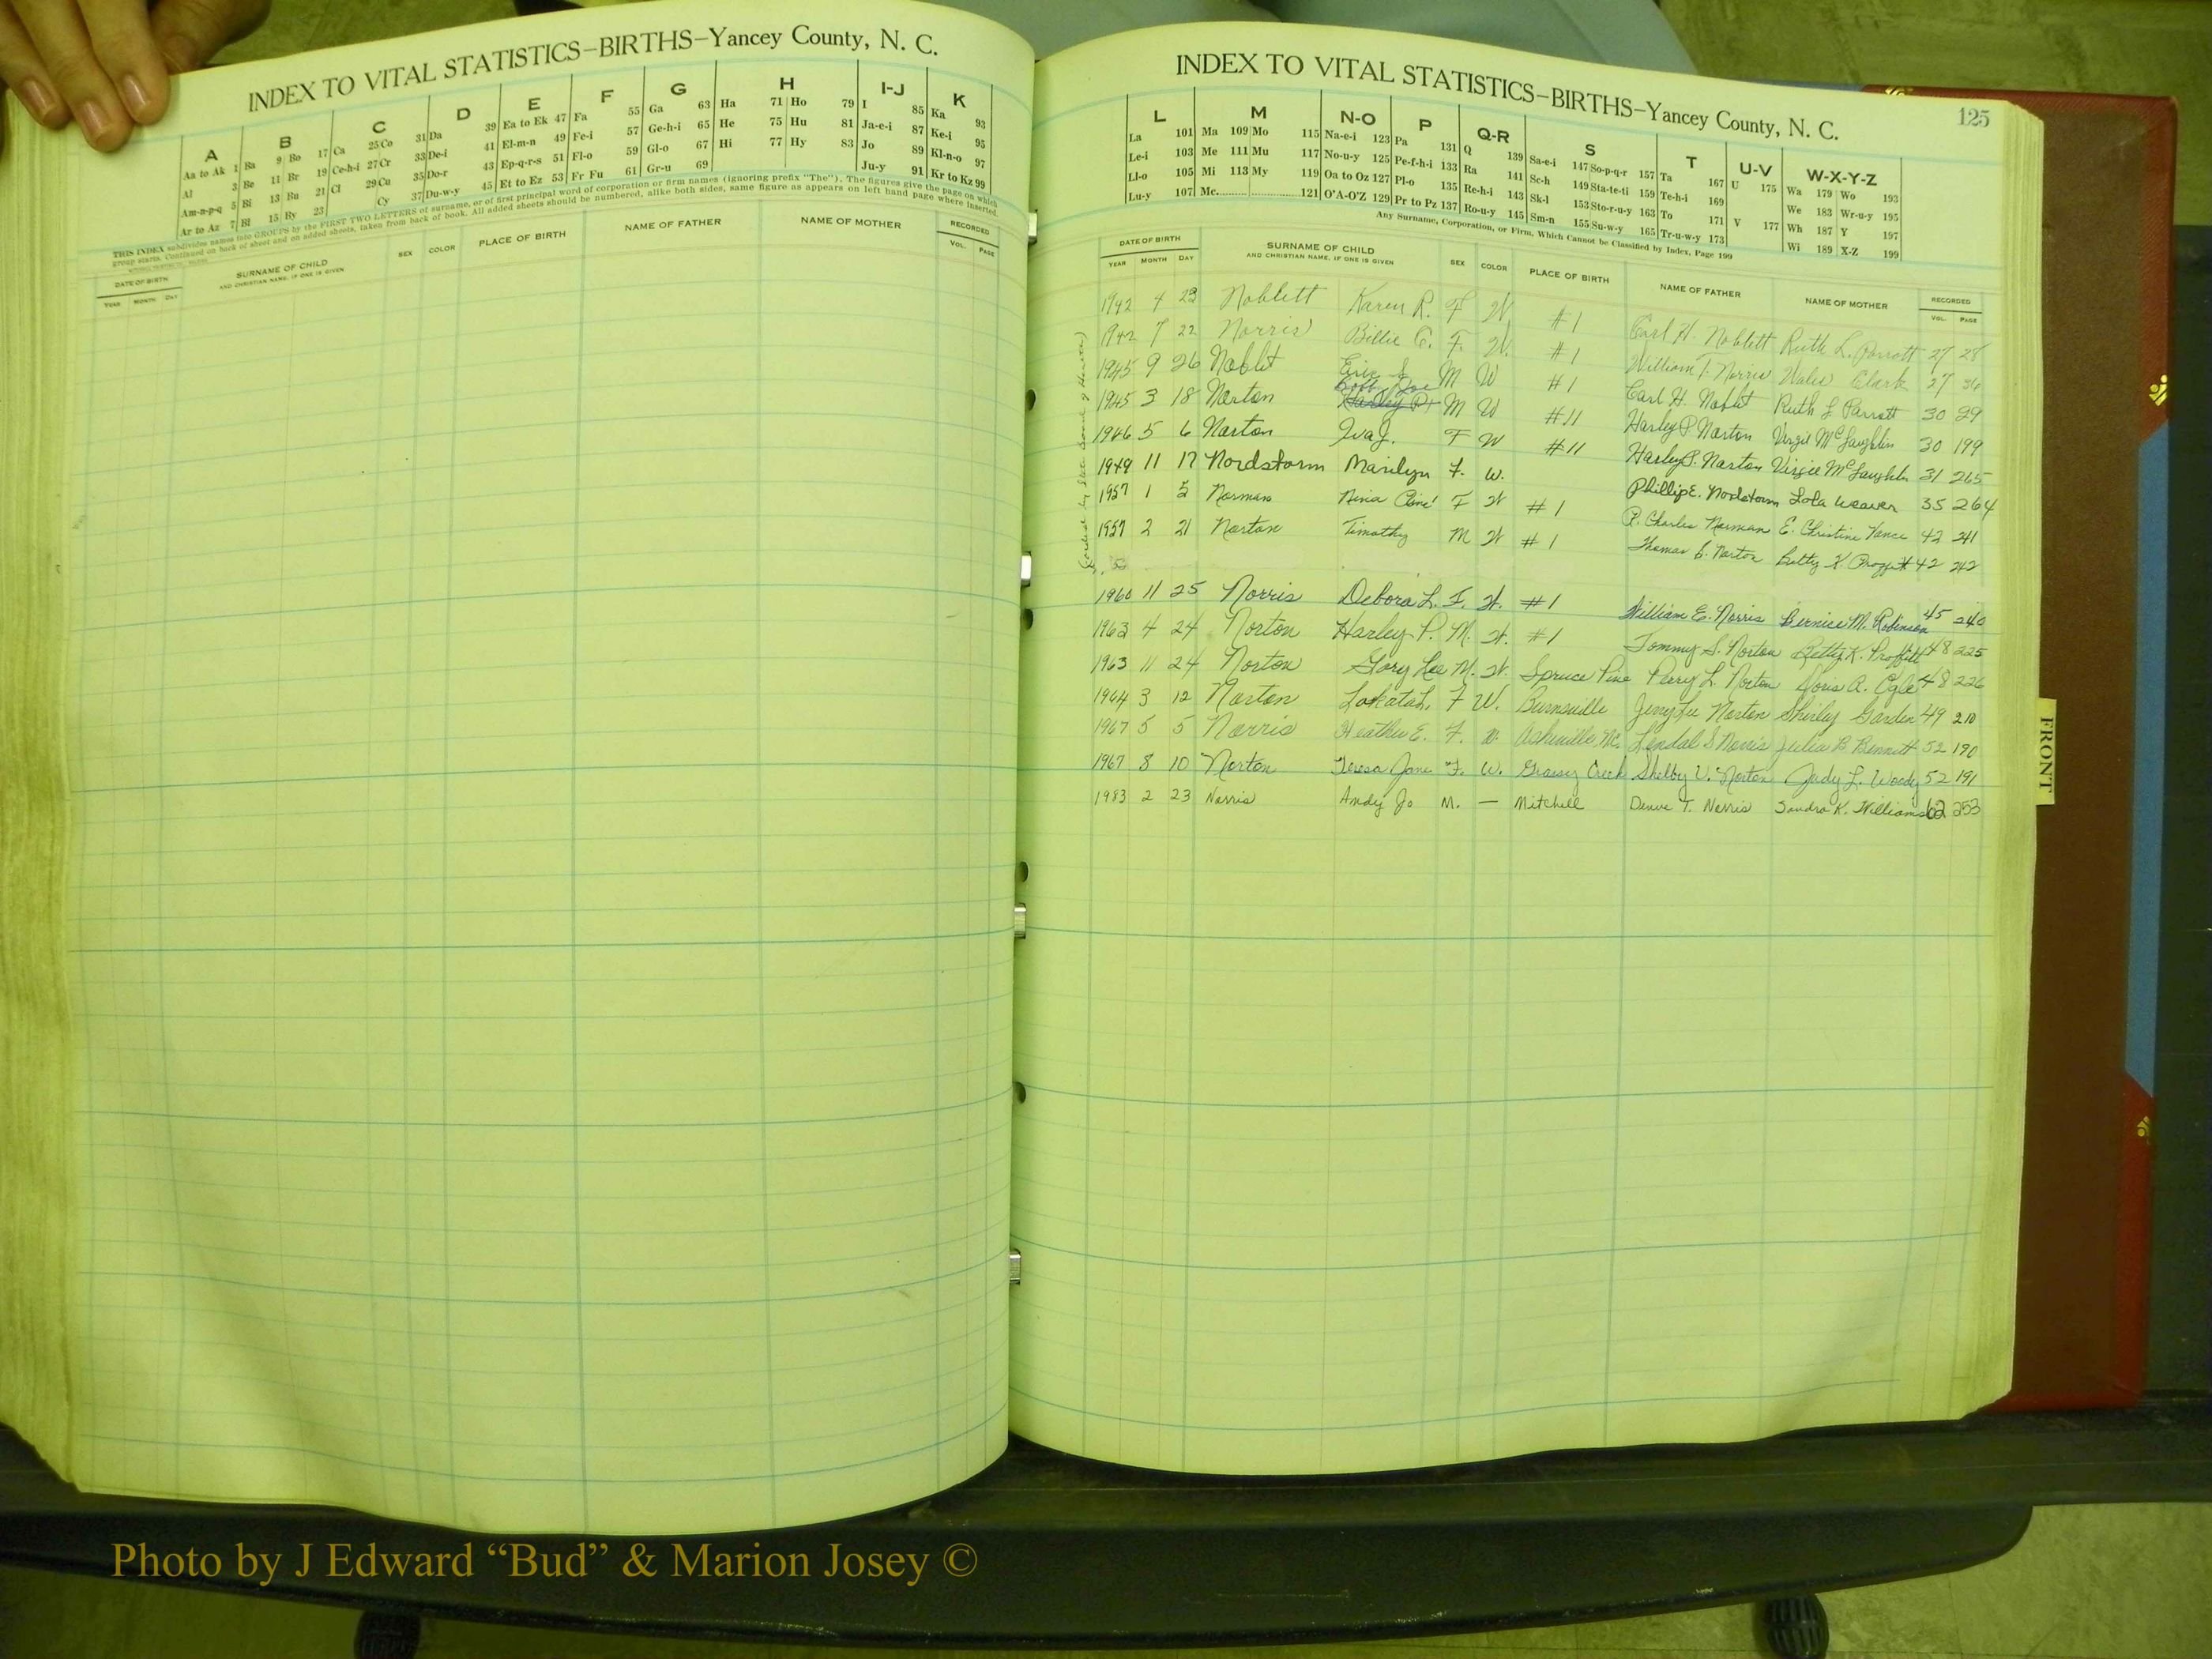 INDEX TO VITAL STATISTICS–BIRTHS–Yancey County, N. C.
A B C D E F G H I-J K
Aa to Ak 1 Ba 9 Bo 17 Ca 25 Co 31 Da 39 Ea to Ek 47 Fa 55 Ga 63 Ha 71 Ho 79 I 85 Ka 93
Al 3 Be 11 Br 19 Ce-h-i 27 Cr 33 De-i 41 El-m-n 49 Fe-i 57 Ge-h-i 65 He 75 Hu 81 Ja-e-i 87 Ke-i 95
Am-n-p-q 5 Bi 13 Bu 21 Cl 29 Cu 35 Do-r 43 Ep-q-r-s 51 Fl-o 59 Gl-o 67 Hi 77 Hy 83 Jo 89 Kl-n-o 97
Ar to Az 7 Bl 15 By 23 Cy 37 Du-w-y 45 Et to Ez 53 Fr Fu 61 Gr-u 69 Ju-y 91 Kr to Kz 99
THIS INDEX subdivides names into GROUPS by the FIRST TWO LETTERS of surname, or of first principal word of corporation or firm names (ignoring prefix "The"). The figures give the page on which
group starts. Continued on back of sheet and on added sheets, taken from back of book. All added sheets should be numbered, alike both sides, same figure as appears on left hand page where inserted.
DATE OF BIRTH SURNAME OF CHILD SEX COLOR PLACE OF BIRTH NAME OF FATHER NAME OF MOTHER RECORDED
YEAR MONTH DAY AND CHRISTIAN NAME, IF ONE IS GIVEN VOL. PAGE
125
INDEX TO VITAL STATISTICS–BIRTHS–Yancey County, N. C.
L M N-O P Q-R S T U-V W-X-Y-Z
La 101 Ma 109 Mo 115 Na-e-i 123 Pa 131 Q 139 Sa-e-i 147 So-p-q-r 157 Ta 167 U 175 Wa 179 Wo 193
Le-i 103 Me 111 Mu 117 No-u-y 125 Pe-f-h-i 133 Ra 141 Sc-h 149 Sta-te-ti 159 Te-h-i 169 We 183 Wr-u-y 195
Ll-o 105 Mi 113 My 119 Oa to Oz 127 Pl-o 135 Re-h-i 143 Sk-l 153 Sto-r-u-y 163 To 171 V 177 Wh 187 Y 197
Lu-y 107 Mc 121 O'A-O'Z 129 Pr to Pz 137 Ro-u-y 145 Sm-n 155 Su-w-y 165 Tr-u-w-y 173 Wi 189 X-Z 199
Any Surname, Corporation, or Firm, Which Cannot be Classified by Index, Page 199
DATE OF BIRTH SURNAME OF CHILD SEX COLOR PLACE OF BIRTH NAME OF FATHER NAME OF MOTHER RECORDED
YEAR MONTH DAY AND CHRISTIAN NAME, IF ONE IS GIVEN VOL. PAGE
1942 4 23 Noblett Karen R. F W #1 Carl H. Noblett Ruth L. Parrott 27 28
1942 7 22 Norris Billie C. F. W. #1 William T. Norris Clark 27
1945 9 26 Noblet Eric M W #1 Carl H. Noblet Ruth L Parrott 30 29
1945 3 18 Norton Harley P. M W #11 Harley P Norton Virgie McLaughlin 30 199
1946 5 6 Norton Iva J. F W #11 Harley P. Norton Virgie McLaughlin 31 265
1949 11 17 Nordstorm Marilyn F. W. Phillip E. Nordstorm Lola Weaver 35 264
1957 1 5 Norman Nina F W #1 R. Charles Norman E. Christine Vance 42 241
1957 2 21 Norton Timothy M W #1 Thomas S. Norton Betty K Proffitt 42 242
1960 11 25 Norris Debora L. F. W. #1 William E. Norris Bernice M. Robinson 45 240
1963 4 24 Norton Harley P. M. W. #1 Tommy S. Norton Betty K. Proffitt 48 225
1963 11 24 Norton Gary Lee M. W. Spruce Pine Perry L. Norton Doris A. Ogle 48 226
1964 3 12 Norton F W. Burnsville Jerry Lee Norton Shirley Garden 49 210
1967 5 5 Norris Heather E. F. W. Asheville NC. Lendal S Norris Julia B Bennett 52 190
1967 8 10 Norton Teresa Jane F. W. Grassy Creek Shelby V. Norton Judy L. Woody 52 191
1983 2 23 Norris Andy Jo M. — Mitchell T. Norris Sandra K. Williams 62 253
FRONT
Photo by J Edward “Bud” & Marion Josey ©